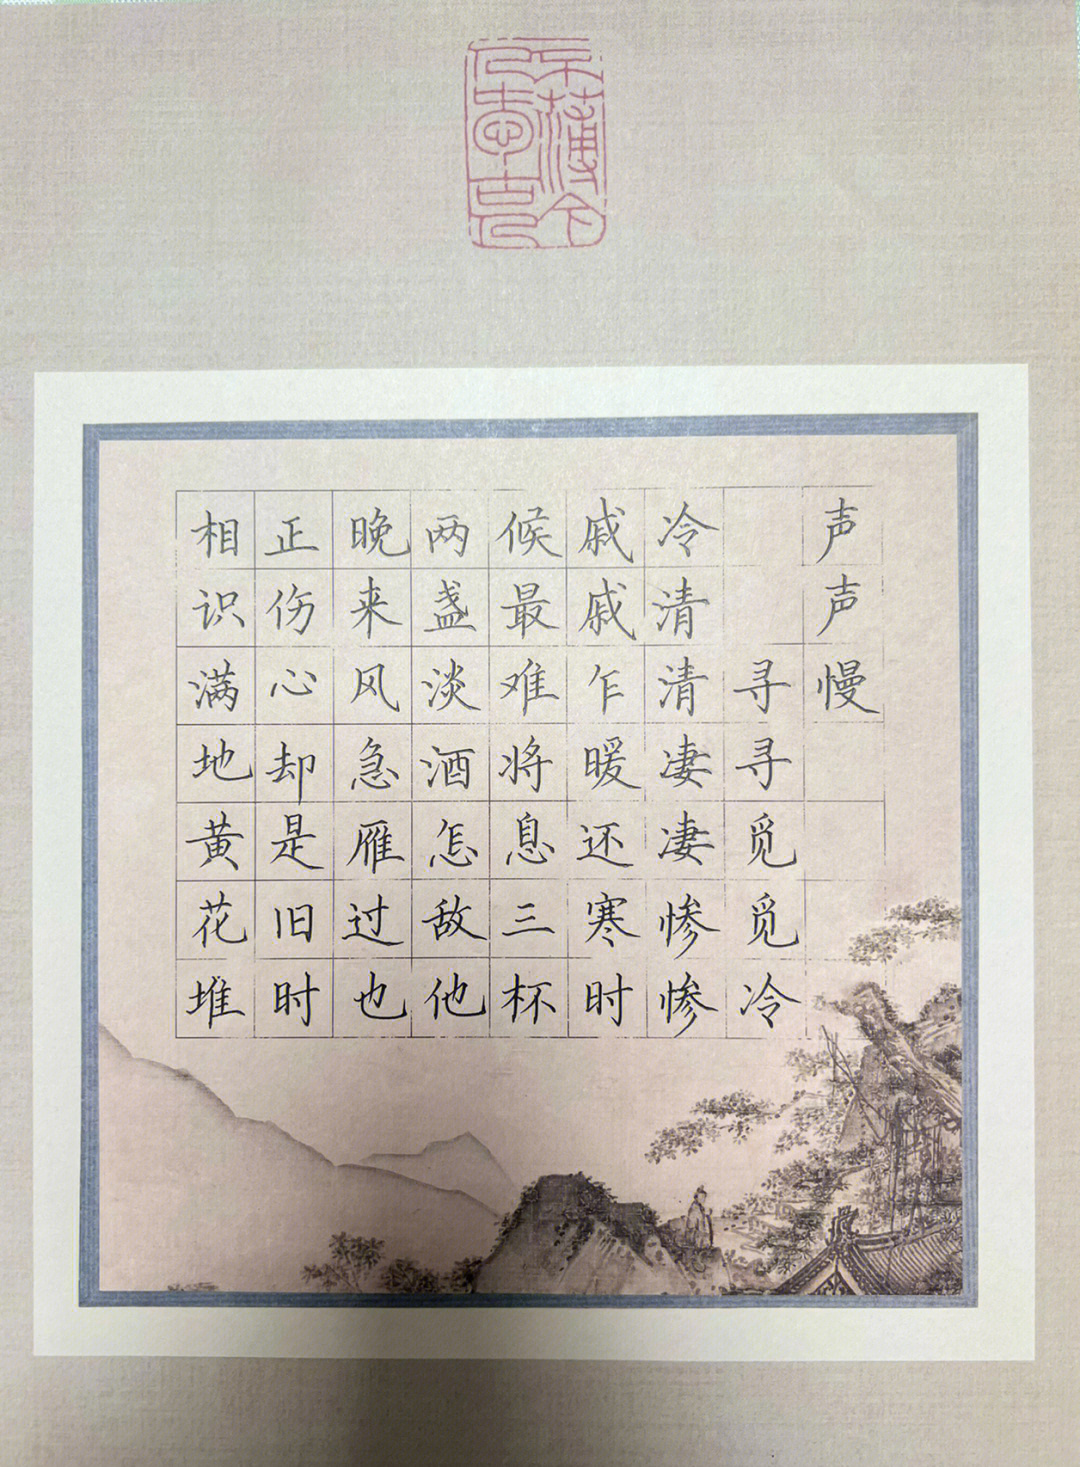 不薄今
人爱古人
声声慢
寻寻觅觅冷
冷清清凄凄惨惨
戚戚乍暖还寒时
候最难将息三杯
两盏淡酒怎敌他
晚来风急雁过也
正伤心却是旧时
相识满地黄花堆